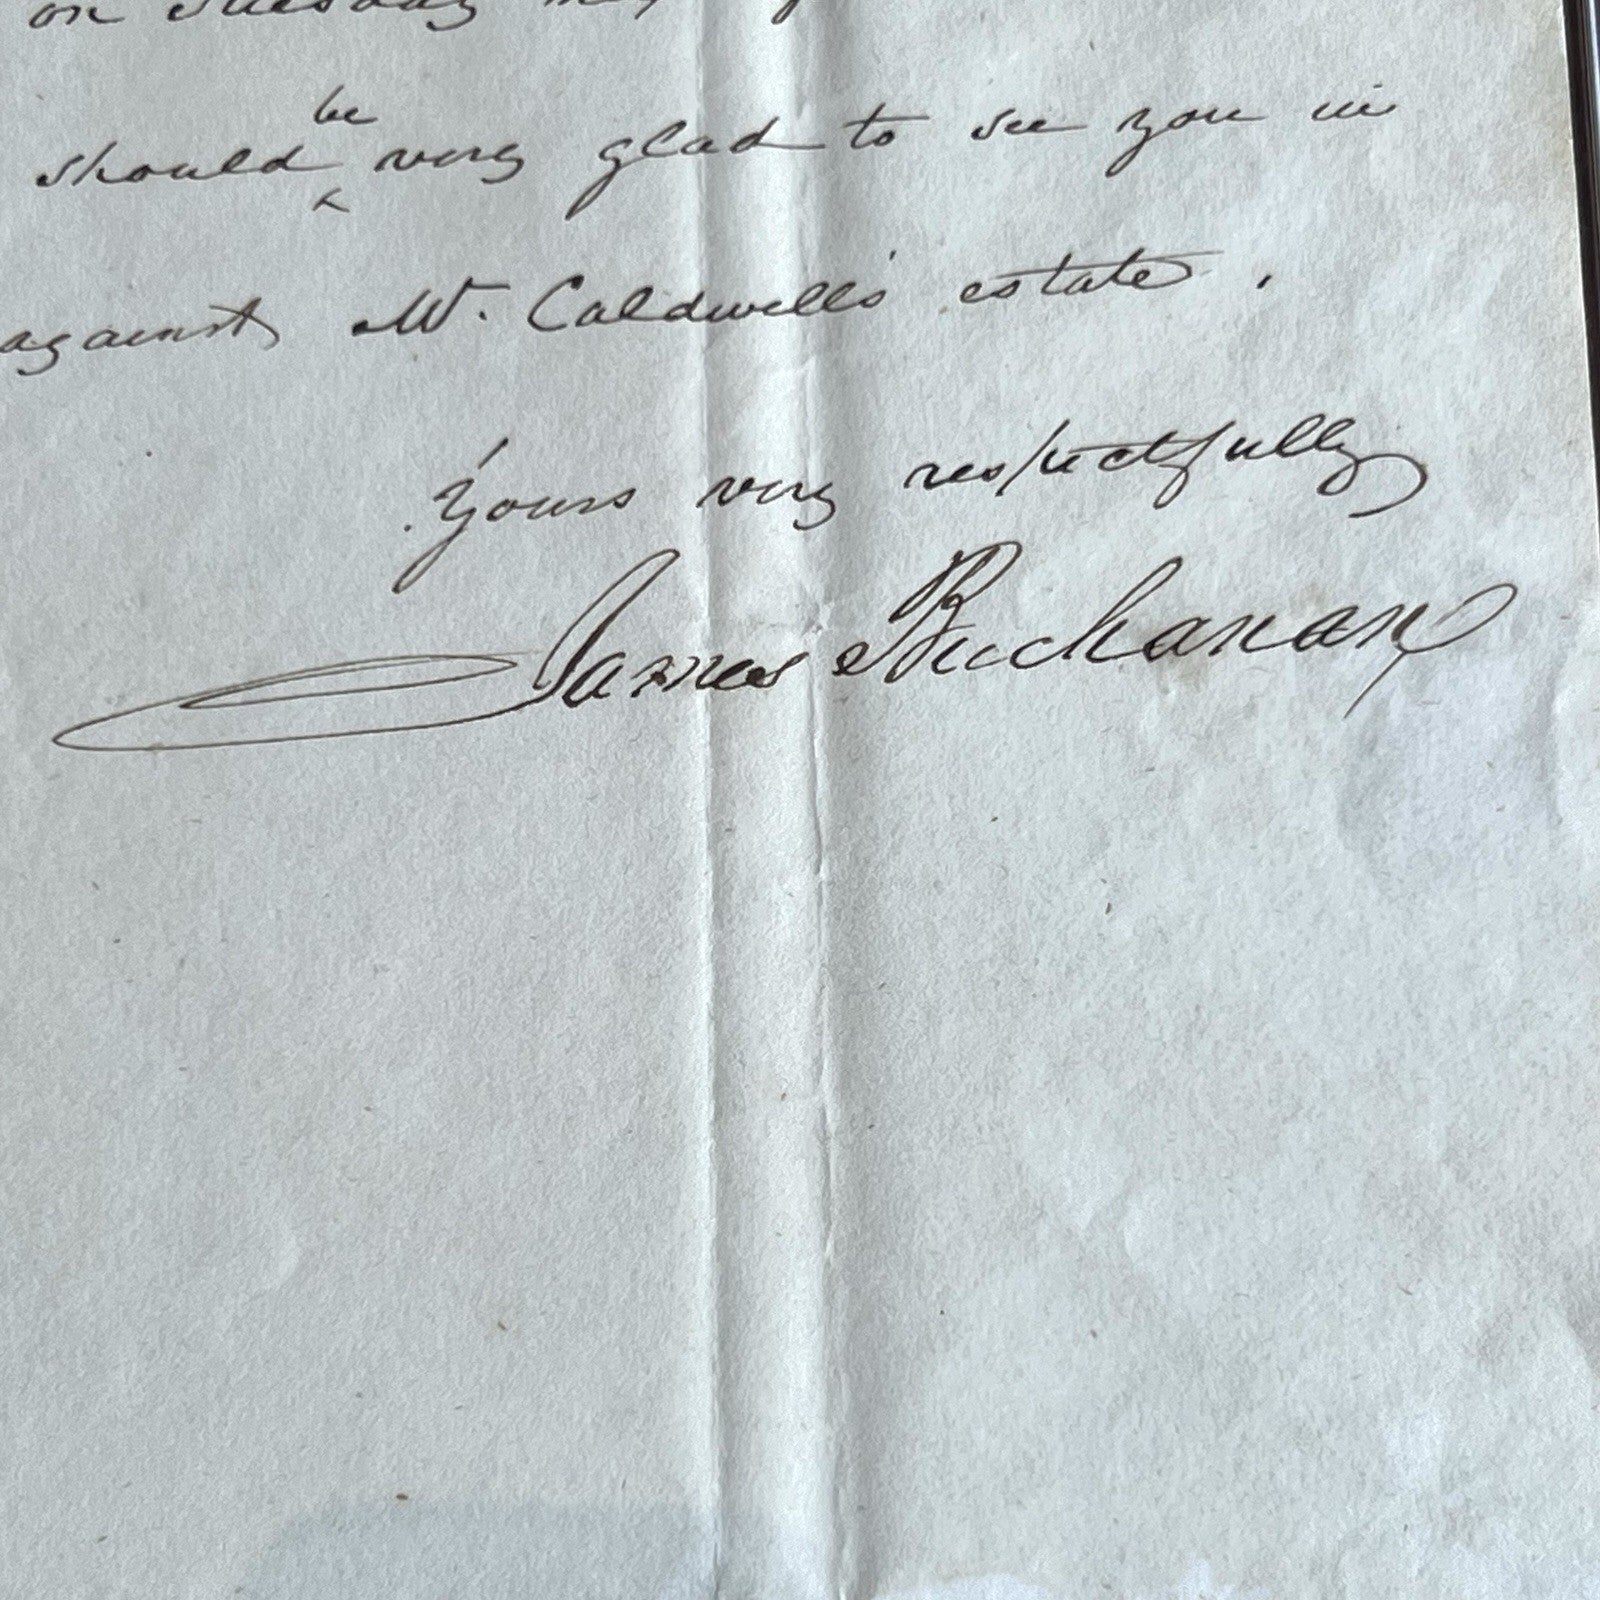 on Tuesday
should be very glad to see you in
against Mr. Caldwell's estate.
Yours very respectfully
James Buchanan